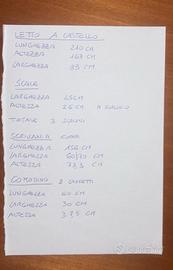 LETTO A CASTELLO
LUNGHEZZA 210 CM
ALTEZZA 163 CM
LARGHEZZA 95 CM
SCALE
LARGHEZZA 45CM
ALTEZZA 26 CM A
TOTALE 3
SCRIVANIA
LUNGHEZZA 156 CM
LARGHEZZA 60/70 CM
ALTEZZA 73,5 CM
COMODINO 2 CASSETTI
LUNGHEZZA 60 CM
LARGHEZZA 30 CM
ALTEZZA 37,5 CM